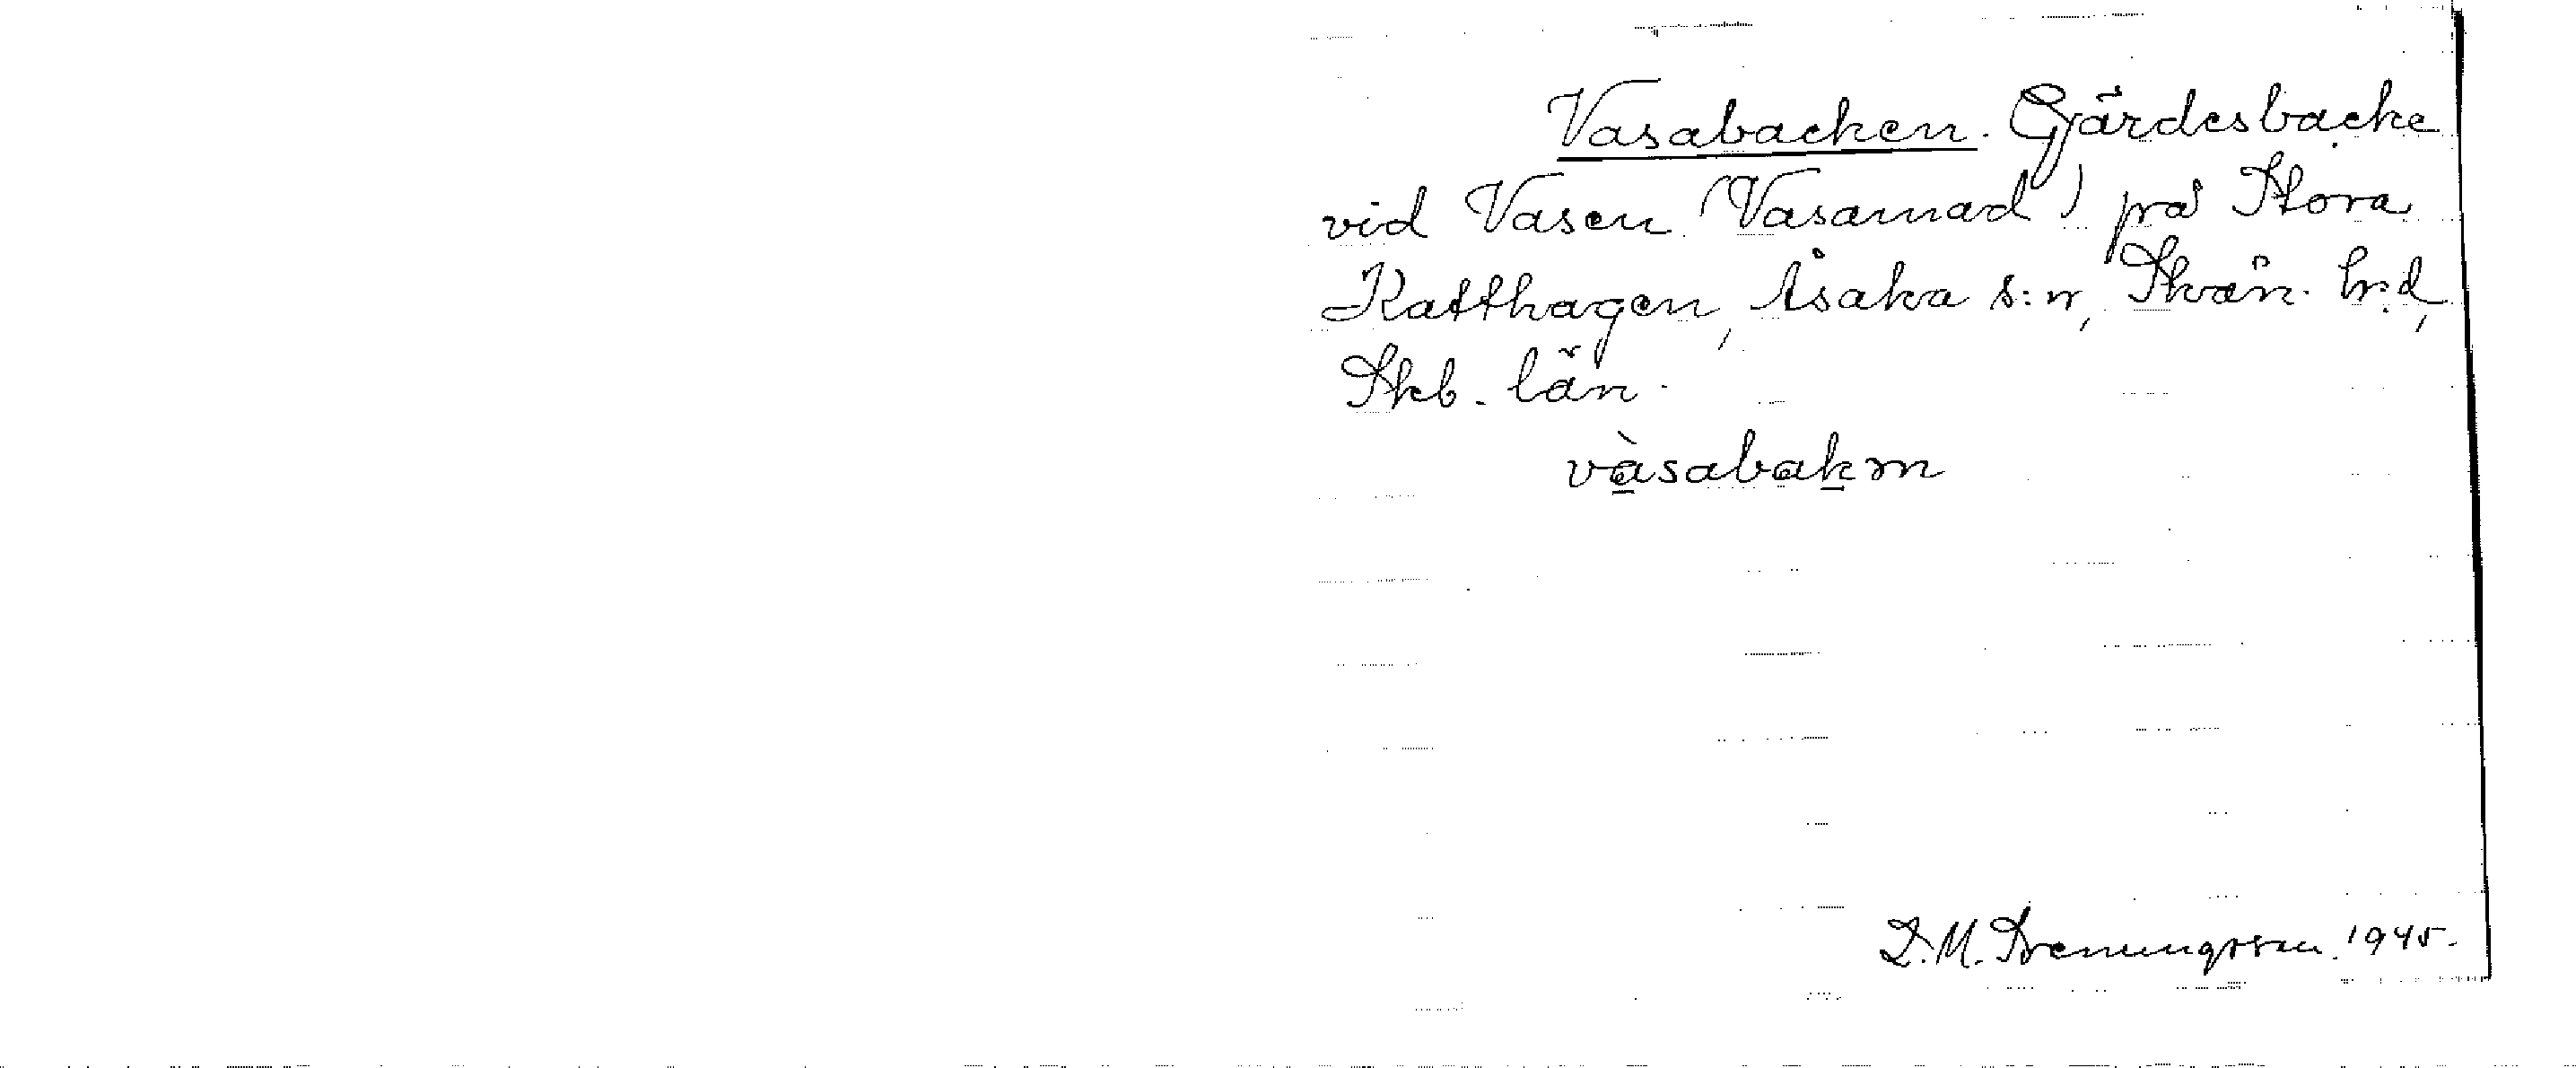 Vasabacken. Gärdesbacke
vid Vasen (Vasamad) på Stora
Katthagen, Åsaka s:n, Skån. hd,
Skb. län.
vàsabakm
D. M. 1945.